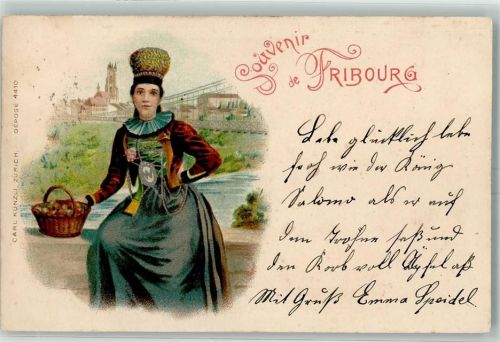 Souvenir
de FRIBOURG
CARL KÜNZLI, ZÜRICH. DÉPOSÉ 4410
Lebe glücklich lebe
froh wie der König
Salomo als er auf
dem Trohne saß und
den Korb voll Äpfel aß
Mit Gruß Emma Speidel.